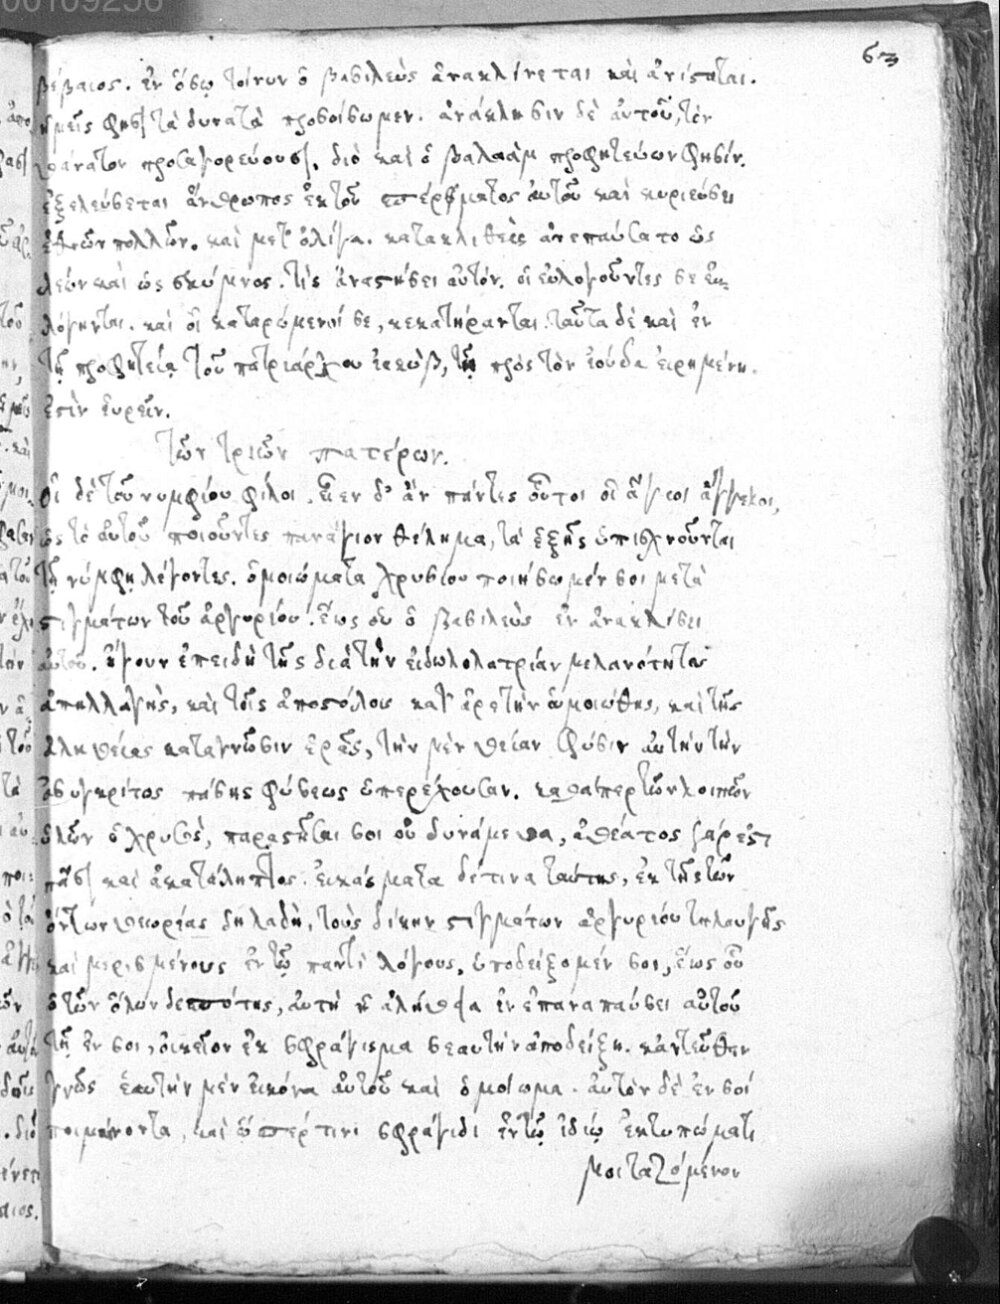 00109256
63
βέβαιος. ἐν ὅσῳ τοίνυν ὁ βασιλεὺς ἀνακλίνεται καὶ ἀνίσταται.
ἡμεῖς φησὶ τὰ δυνατὰ προσοίσωμεν. ἀνάκλησιν δὲ αὐτοῦ, τὸν
θάνατον προσαγορεύουσι. διὸ καὶ ὁ βαλαὰμ προφητεύων φησίν.
ἐξελεύσεται ἄνθρωπος ἐκ τοῦ σπέρματος αὐτοῦ καὶ κυριεύσει
ἐθνῶν πολλῶν. καὶ μετ' ὀλίγα. κατακλιθεὶς ἀνεπαύσατο ὡς
λέων καὶ ὡς σκύμνος. τίς ἀναστήσει αὐτόν. οἱ εὐλογοῦντές σε εὐ-
λόγηνται. καὶ οἱ καταρώμενοί σε, κεκατήρανται. ταῦτα δὲ καὶ ἐν
τῇ προφητείᾳ τοῦ πατριάρχου ἰακὼβ, τῇ πρὸς τὸν ἰούδα εἰρημένῃ.
ἐστὶν εὑρεῖν.
τῶν τριῶν πατέρων.
οἱ δὲ τοῦ νυμφίου φίλοι. εἶεν δ' ἂν πάντες οὗτοι οἱ ἅγιοι ἄγγελοι,
ὡς τὸ αὐτοῦ ποιοῦντες πανάγιον θέλημα, τὰ ἑξῆς ὑπισχνοῦνται
τῇ νύμφῃ λέγοντες. ὁμοιώματα χρυσίου ποιήσωμέν σοι μετὰ
στιγμάτων τοῦ ἀργυρίου. ἕως οὗ ὁ βασιλεὺς ἐν ἀνακλίσει
αὐτοῦ. ἤγουν ἐπειδὴ τῆς διὰ τὴν εἰδωλολατρίαν μελανότητος
ἀπηλλάγης, καὶ τοῖς ἀποστόλοις κατ' ἀρετὴν ὡμοιώθης, καὶ τῆς
ἀληθείας κατάγνωσιν ἐρᾷς, τὴν μὲν θείαν φύσιν αὐτὴν τὴν
ἀσυγκρίτως πάσης φύσεως ὑπερέχουσαν. καθάπερ τῶν λοιπῶν
ὑλῶν ὁ χρυσὸς, παραστῆσαί σοι οὐ δυνάμεθα, ἀθέατος γάρ ἐστ
πᾶσι καὶ ἀκατάληπτος. εἰκάσματα δέ τινα ταύτης, ἐκ τῆς τῶν
ὄντων θεωρίας δηλαδὴ, τοὺς δίκην στιγμάτων ἀργυρίου τηλαυγεῖς
καὶ μερισμένους ἐν τῷ παντὶ λόγους. ὑποδείξομέν σοι, ἕως οὗ
ὁ τῶν ὅλων δεσπότης, αὐτὴ ἡ ἀλήθεια ἐν ἐπαναπαύσει αὐτοῦ
τῇ ἐν σοι, οἰκεῖον ἐκσφράγισμα σεαυτὴν ἀποδείξῃ. κἀντεῦθεν
γνῷς ἑαυτὴν μὲν εἰκόνα αὐτοῦ καὶ ὁμοίωμα. αὐτὸν δὲ ἐν σοί
ποιμαίνοντα, καὶ ὥσπέρ τινι σφραγίδι ἐν τῷ ἰδίῳ ἐκτυπώματι
κοιταζόμενον